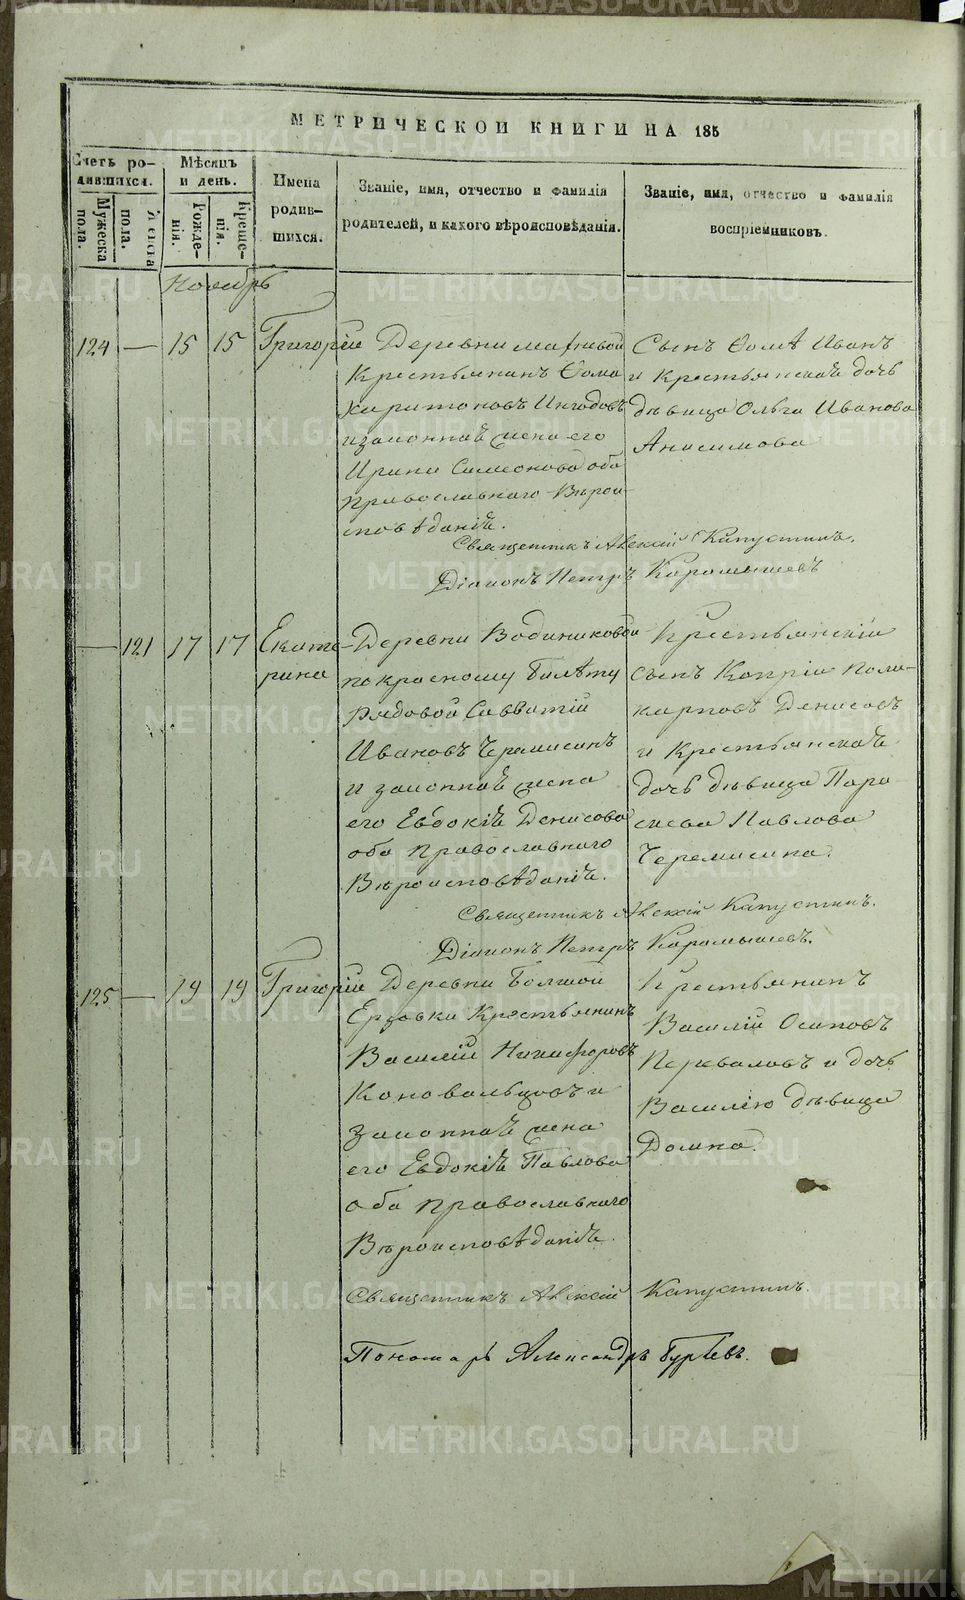 МЕТРИЧЕСКОЙ КНИГИ НА 185
Счетъ ро-
дившихся.
Мѣсяцъ
и день.
Имена
родив-
шихся.
Званіе, имя, отчество и фамилія
родителей, и какого вѣроисповѣданія.
Званіе, имя, отчество и фамилія
воспріемниковъ.
Мужеска
пола.
Женска
пола.
Рожде-
нія.
Креще-
нія.
Ноябрь
124 — 15 15 Григорій
Деревни
Крестьянинъ Ѳома
Харитоновъ
и законная жена его
Ирина Симеонова оба
православнаго Вѣрои-
сповѣданія.
Сынъ Ѳомѣ Иванъ
и Крестьянская дочь
дѣвица Ольга Иванова
Анисимова
Священникъ Алексій Капустинъ.
Діаконъ Петръ Карамышевъ
— 121 17 17 Екате-
рина
Деревни Водениковой
по красному билѣту
Рядовой Савватій
Ивановъ Черемисинъ
и законная жена
его Евдокія Денисова
оба православнаго
Вѣроисповѣданія.
Крестьянскій
сынъ Капріи Поли-
карповъ Денисовъ
и Крестьянская
дочь дѣвица Пара
скева Павлова
Черемисина.
Священникъ Алексій Капустинъ.
Діаконъ Петръ Карамышевъ.
125 — 19 19 Григорій
Деревни Болшой
Ерзовки Крестьянинъ
Василій Никифоровъ
Коновальцовъ и
законная жена
его Евдокія Павлова
оба православнаго
Вѣроисповѣданія.
Крестьянинъ
Василій Осиповъ
Перваловъ и дочь
Василію дѣвица
Домна.
Священникъ Алексій Капустинъ.
Пономарь Александръ Гурьевъ.
METRIKI.GASO-URAL.RU